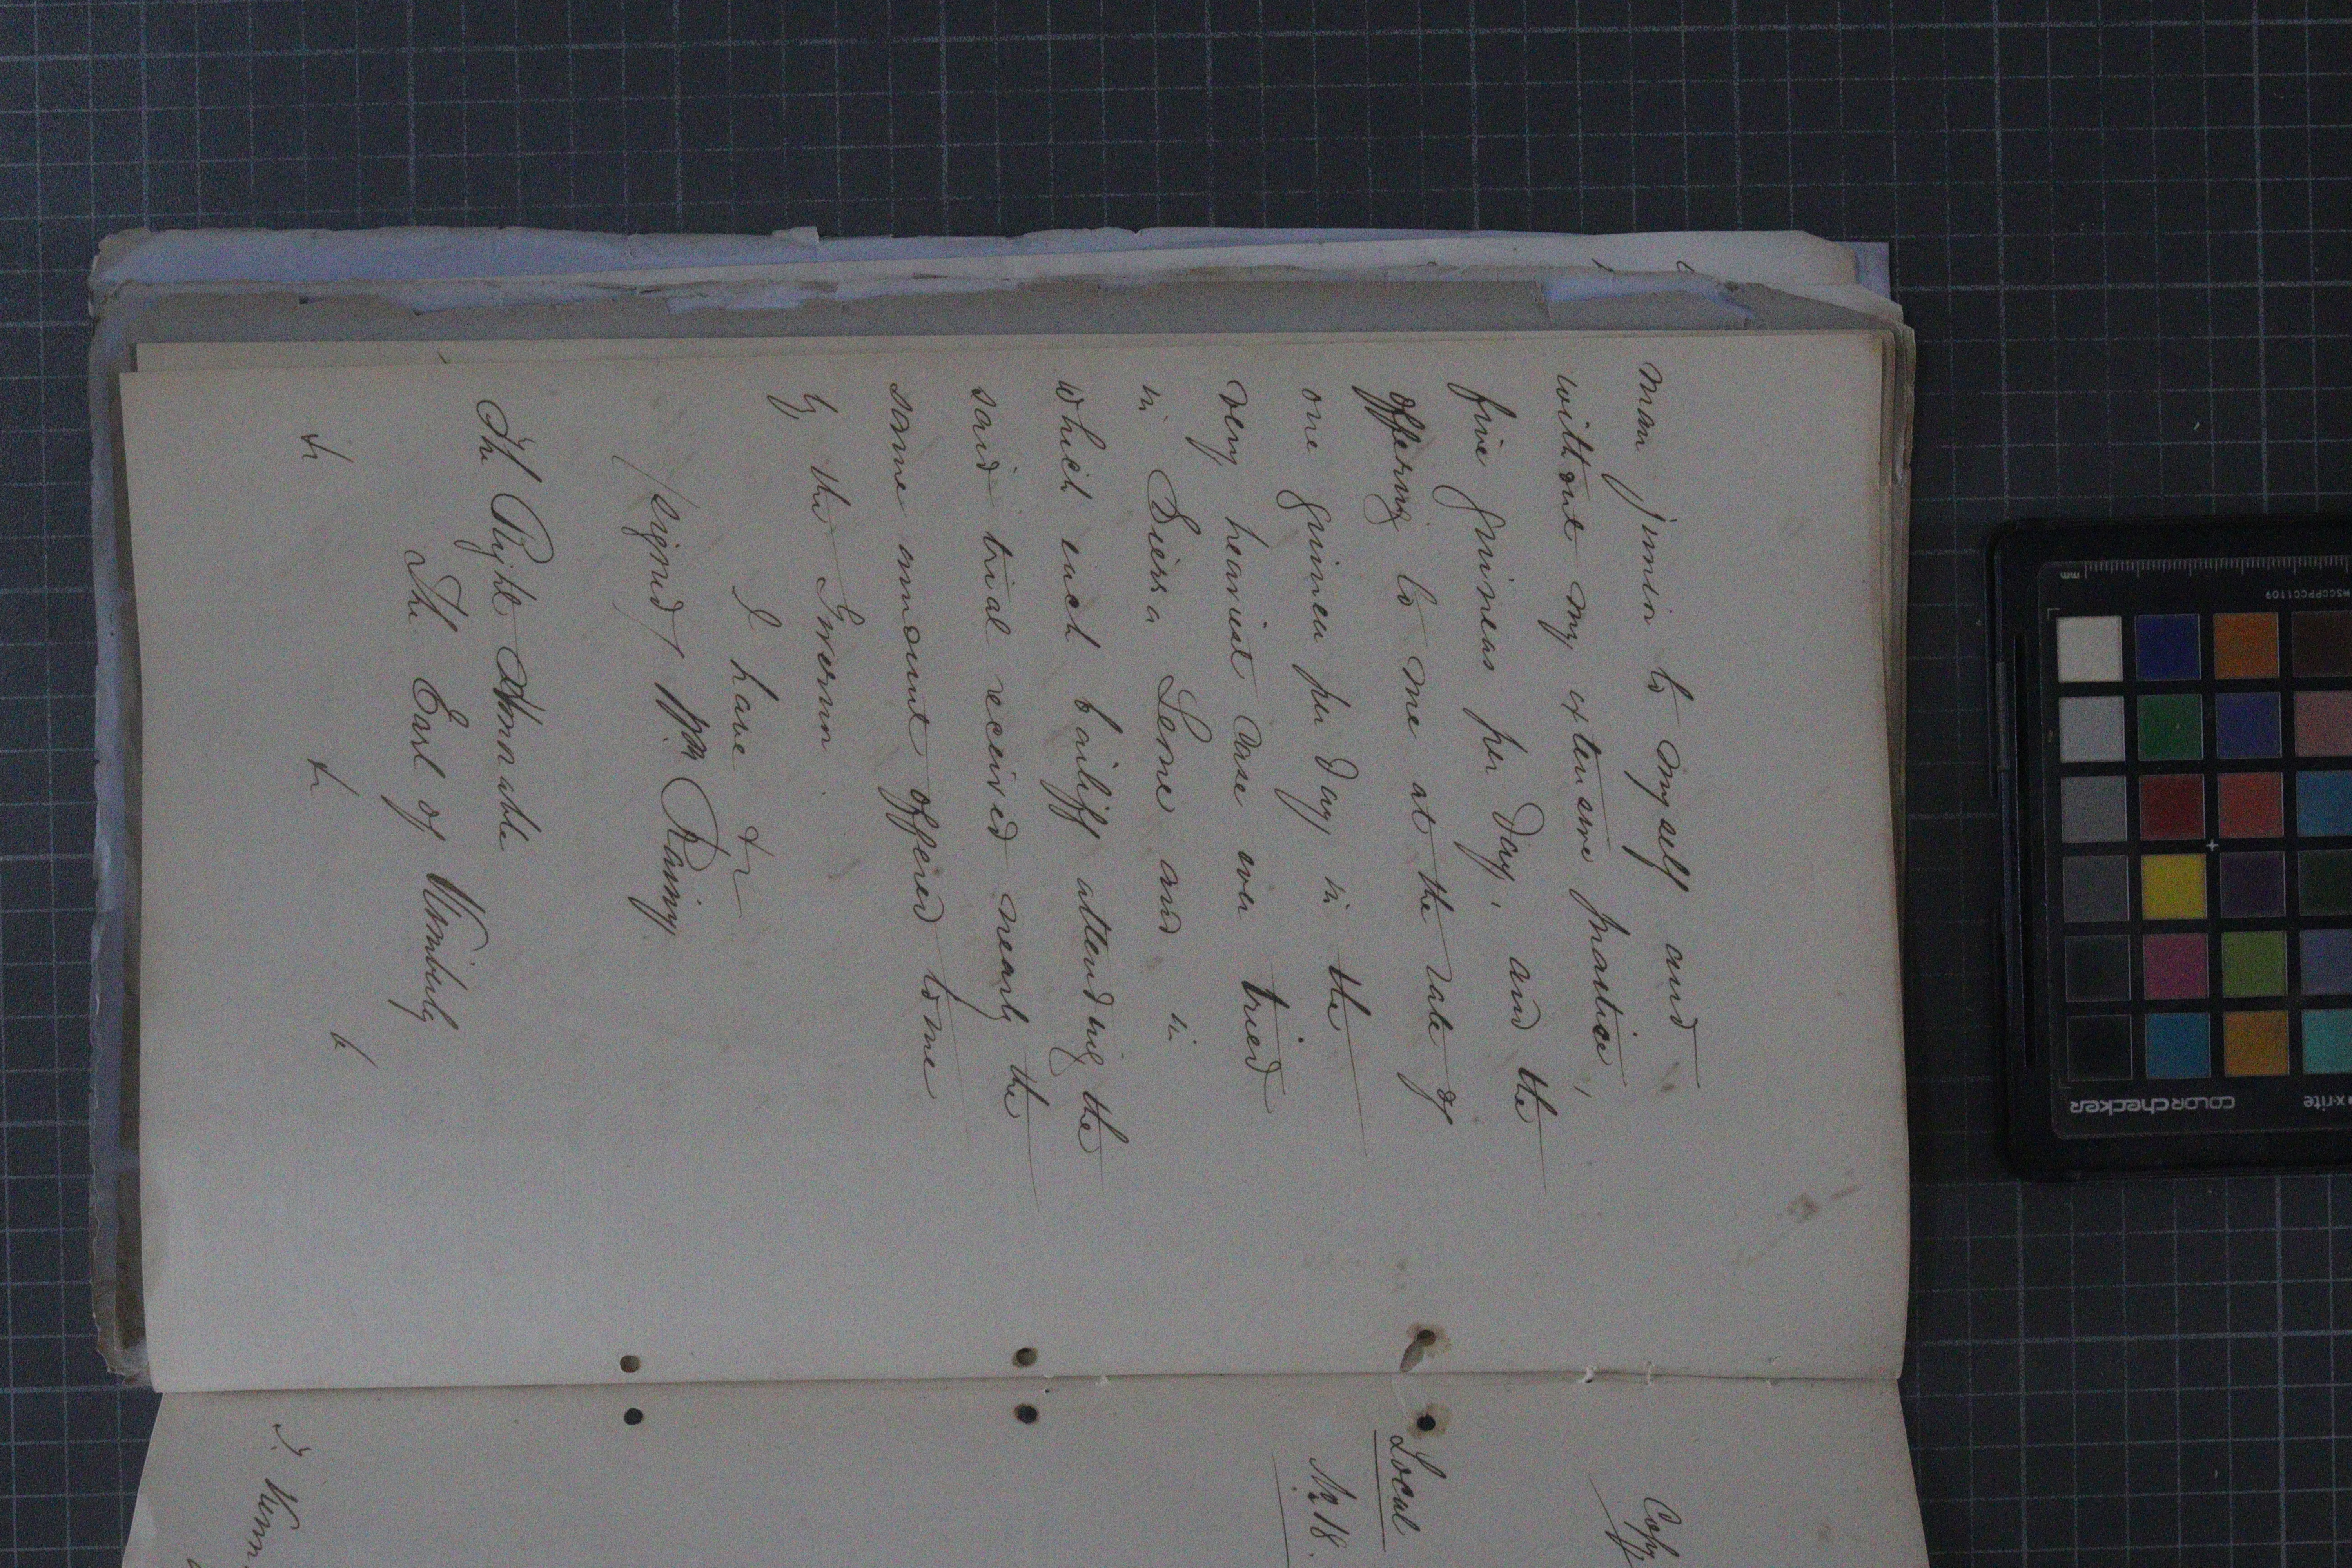 man junior to myself and
without my extensive practice,
five guineas per day, and the
offering to me at the rate of
one guinea per day in the
very heaviest case ever tried
in Sierra Leone and in
which each bailiff attending the
said trial received nearly the
same amount offered to me
by the Governor.
I have &c
/signed/ Wm Rainy
The Right Honorable
The Earl of Kimberly
&c &c &c
Copy
Local
No 18.
mm
MSCCPPCC1109
colorchecker
x-rite